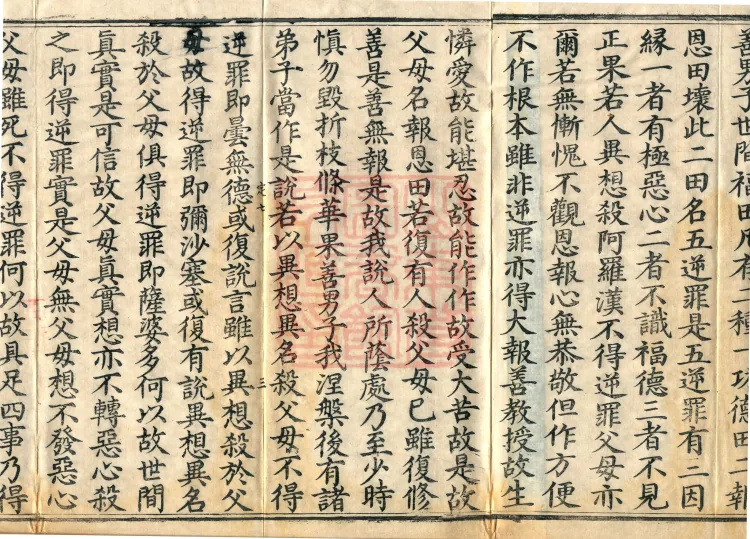 善男子世間福田凡有二種一功德田二報
恩田壞此二田名五逆罪是五逆罪有二因
緣一者有極惡心二者不識福德三者不見
正果若人異想殺阿羅漢不得逆罪父母亦
爾若無慚愧不觀恩報心無恭敬但作方便
不作根本雖非逆罪亦得大報善教授故生
憐愛故能堪忍故能作作故受大苦故是故
父母名報恩田若復有人殺父母已雖復修
善是善無報是故我說人所蔭處乃至少時
慎勿毀折枝條華果善男子我涅槃後有諸
弟子當作是說若以異想異名殺父母不得
定七 三
逆罪即曇無德或復說言雖以異想殺於父
母故得逆罪即彌沙塞或復有說異想異名
殺於父母俱得逆罪即薩婆多何以故世間
眞實是可信故父母眞實想亦不轉惡心殺
之即得逆罪實是父母無父母想不發惡心
父母雖死不得逆罪何以故具足四事乃得